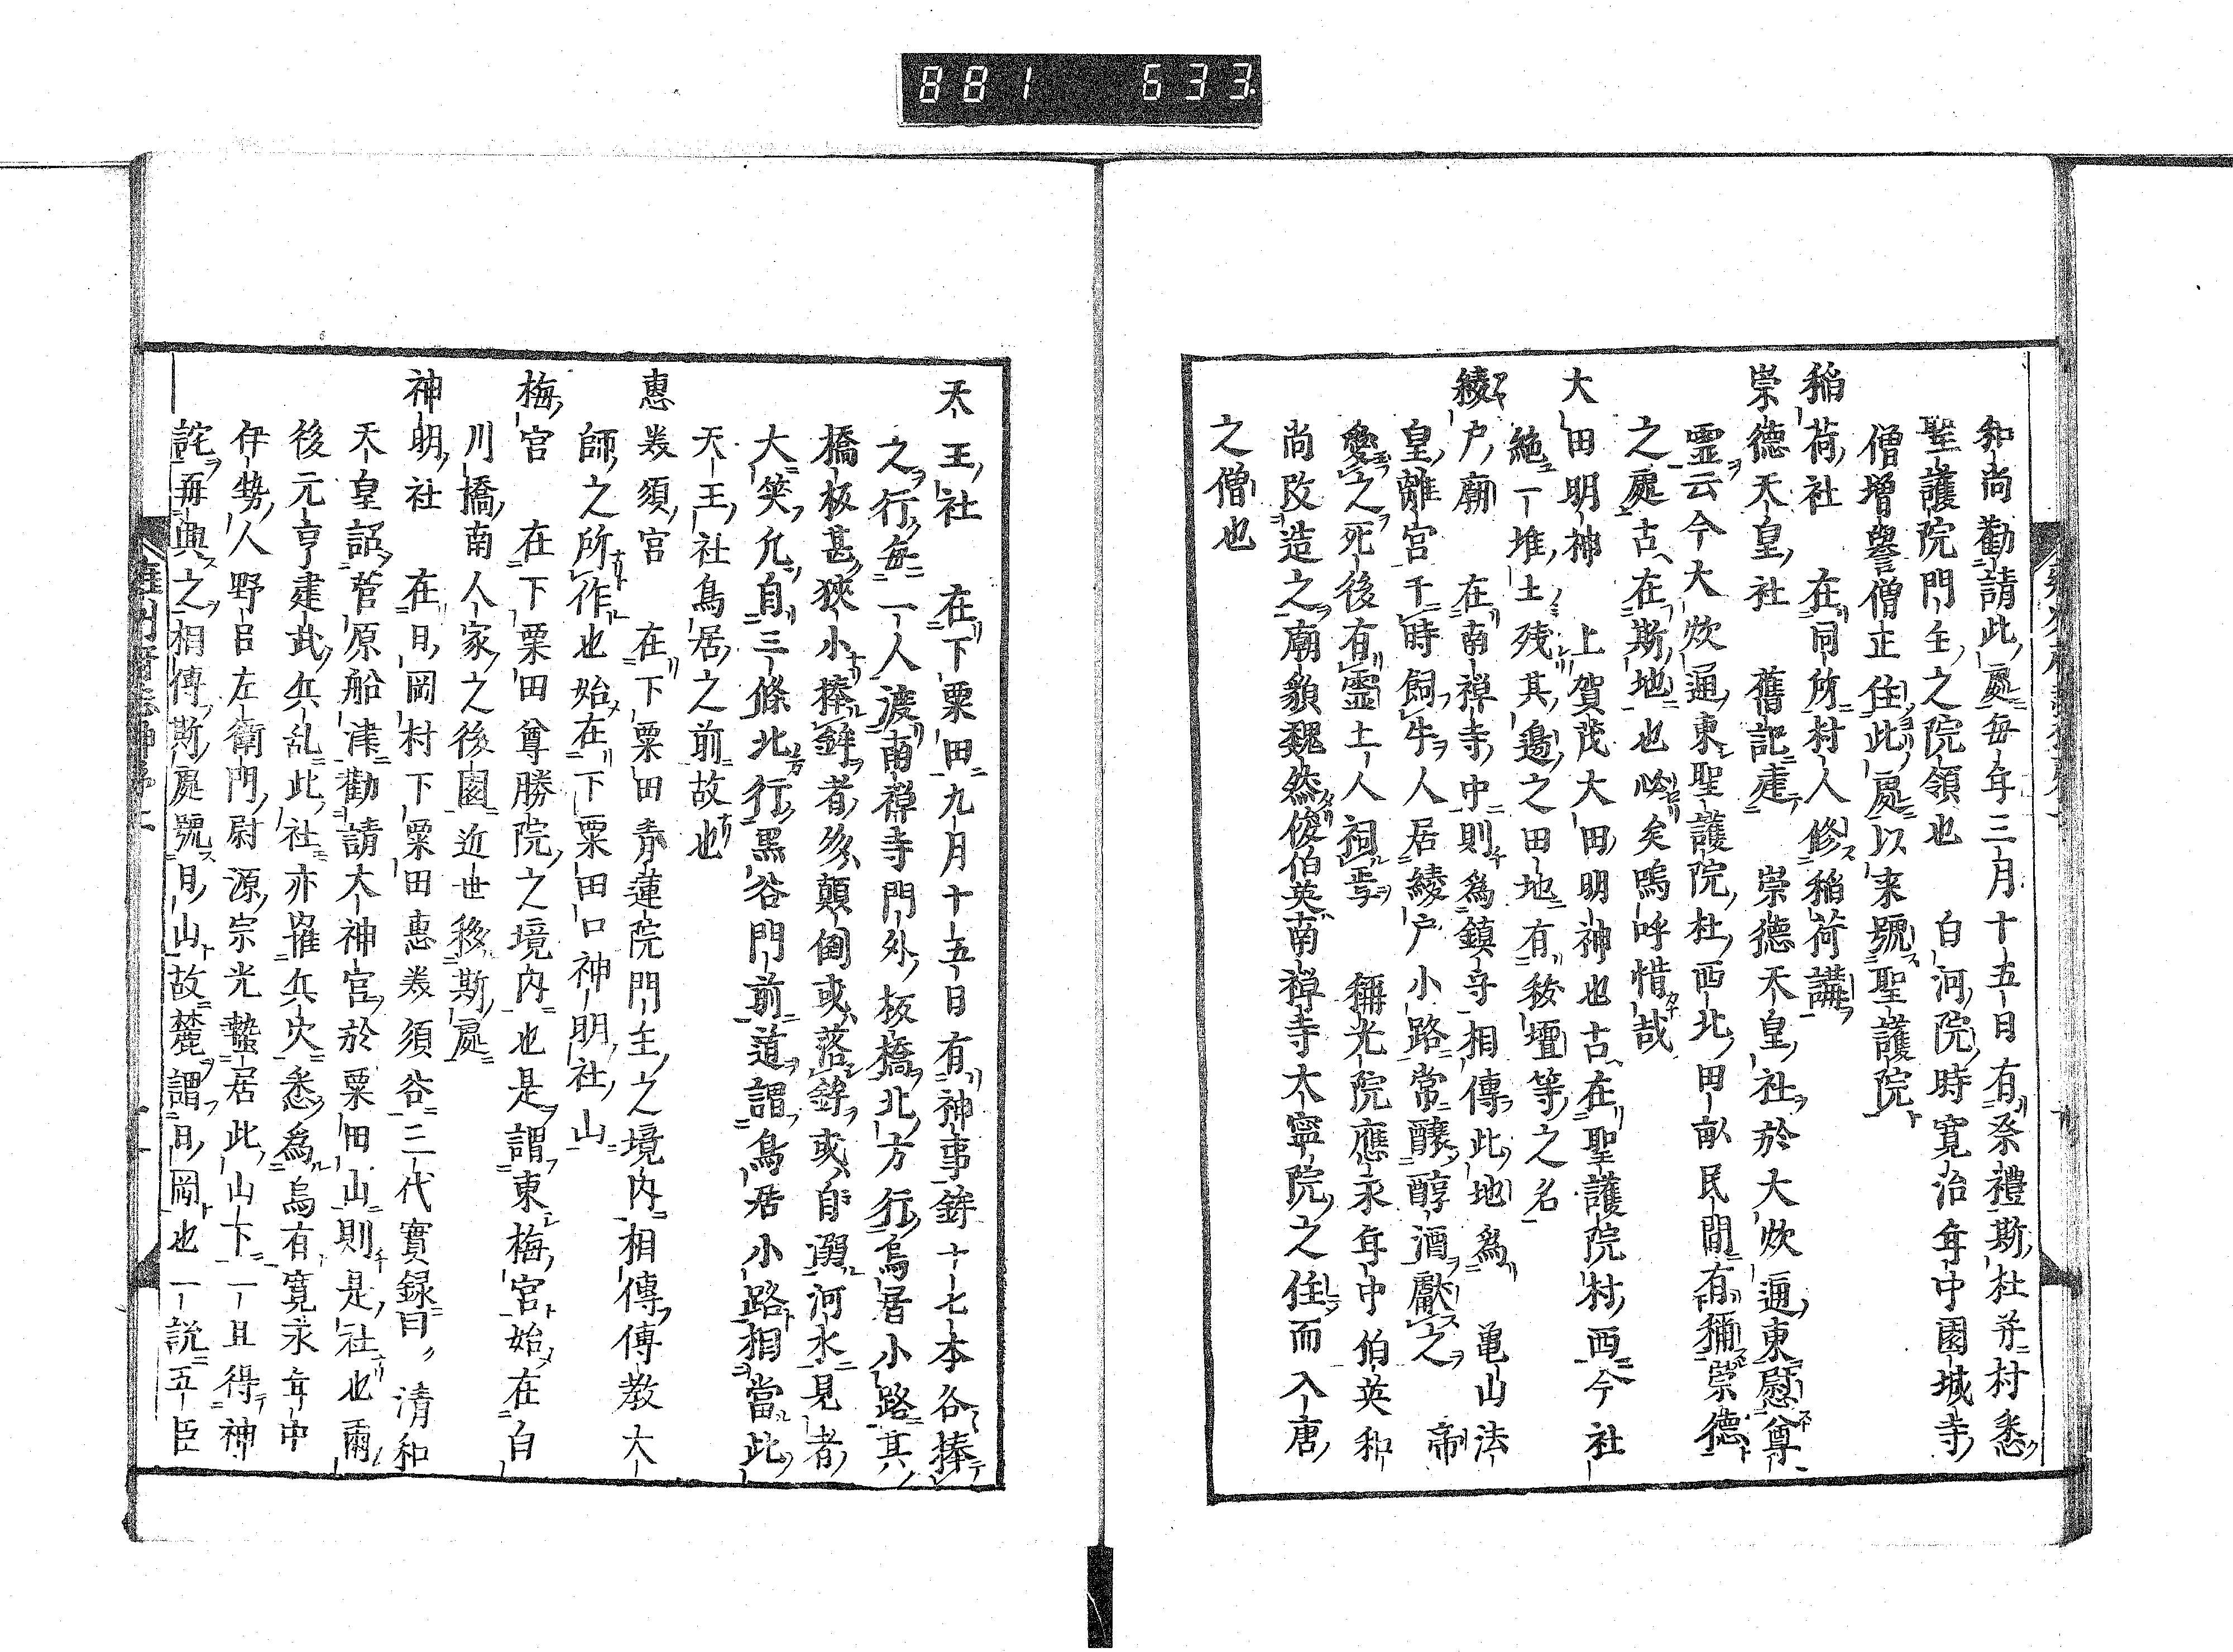 881 633
和尚勸請此處每年三月十五日有祭禮斯杜并村悉
聖護院門主之院領也 白河院時寛治年中園城寺
僧增譽僧正住此處以來號聖護院
稲荷社 在同所村人修稲荷講
崇德天皇社 舊記建 崇德天皇社於大炊通東慰尊
霊云今大炊通東聖護院杜西北田畝民間有稱崇德
之處古在斯地也必矣嗚呼惜哉
大田明神 上賀茂大田明神也古在聖護院村西今社
絶一堆土残其邊之田地有秡壇等之名
綾戸廟 在南禅寺中則為鎮守相傳此地為 亀山法
皇離宮于時飼牛人居綾戸小路常釀醇酒獻之 帝
愛之死後有霊土人祠焉 稱光院應永年中伯英和
尚改造之廟貌魏然俊伯英南禅寺大寧院之住而入唐
之僧也
天王社 在下粟田九月十五日有神事鉾十七本各捧
之行每一人渡南禅寺門外板橋北方行烏居小路其
橋板甚狹小捧鉾者多顛倒或落鉾或自溺河水見者
大笑允自三條北行黒谷門前道謂鳥居小路相當此
天王社鳥居之前故也
惠美須宮 在下粟田青蓮院門主之境内相傳傳教大
師之所作也始在下粟田口神明社山
梅宮 在下粟田尊勝院之境内也是謂東梅宮始在白
川橋南人家之後園近世移斯處
神明社 在日岡村下粟田惠美須谷三代實録曰清和
天皇詔菅原船津勸請大神宮於粟田山則是社也爾
後元亨建武兵乱此社亦罹兵火悉為烏有寛永年中
伊勢人野呂左衛門尉源宗光蟄居此山下一旦得神
託再興之相傳斯處號日山故麓謂日岡也一説五臣